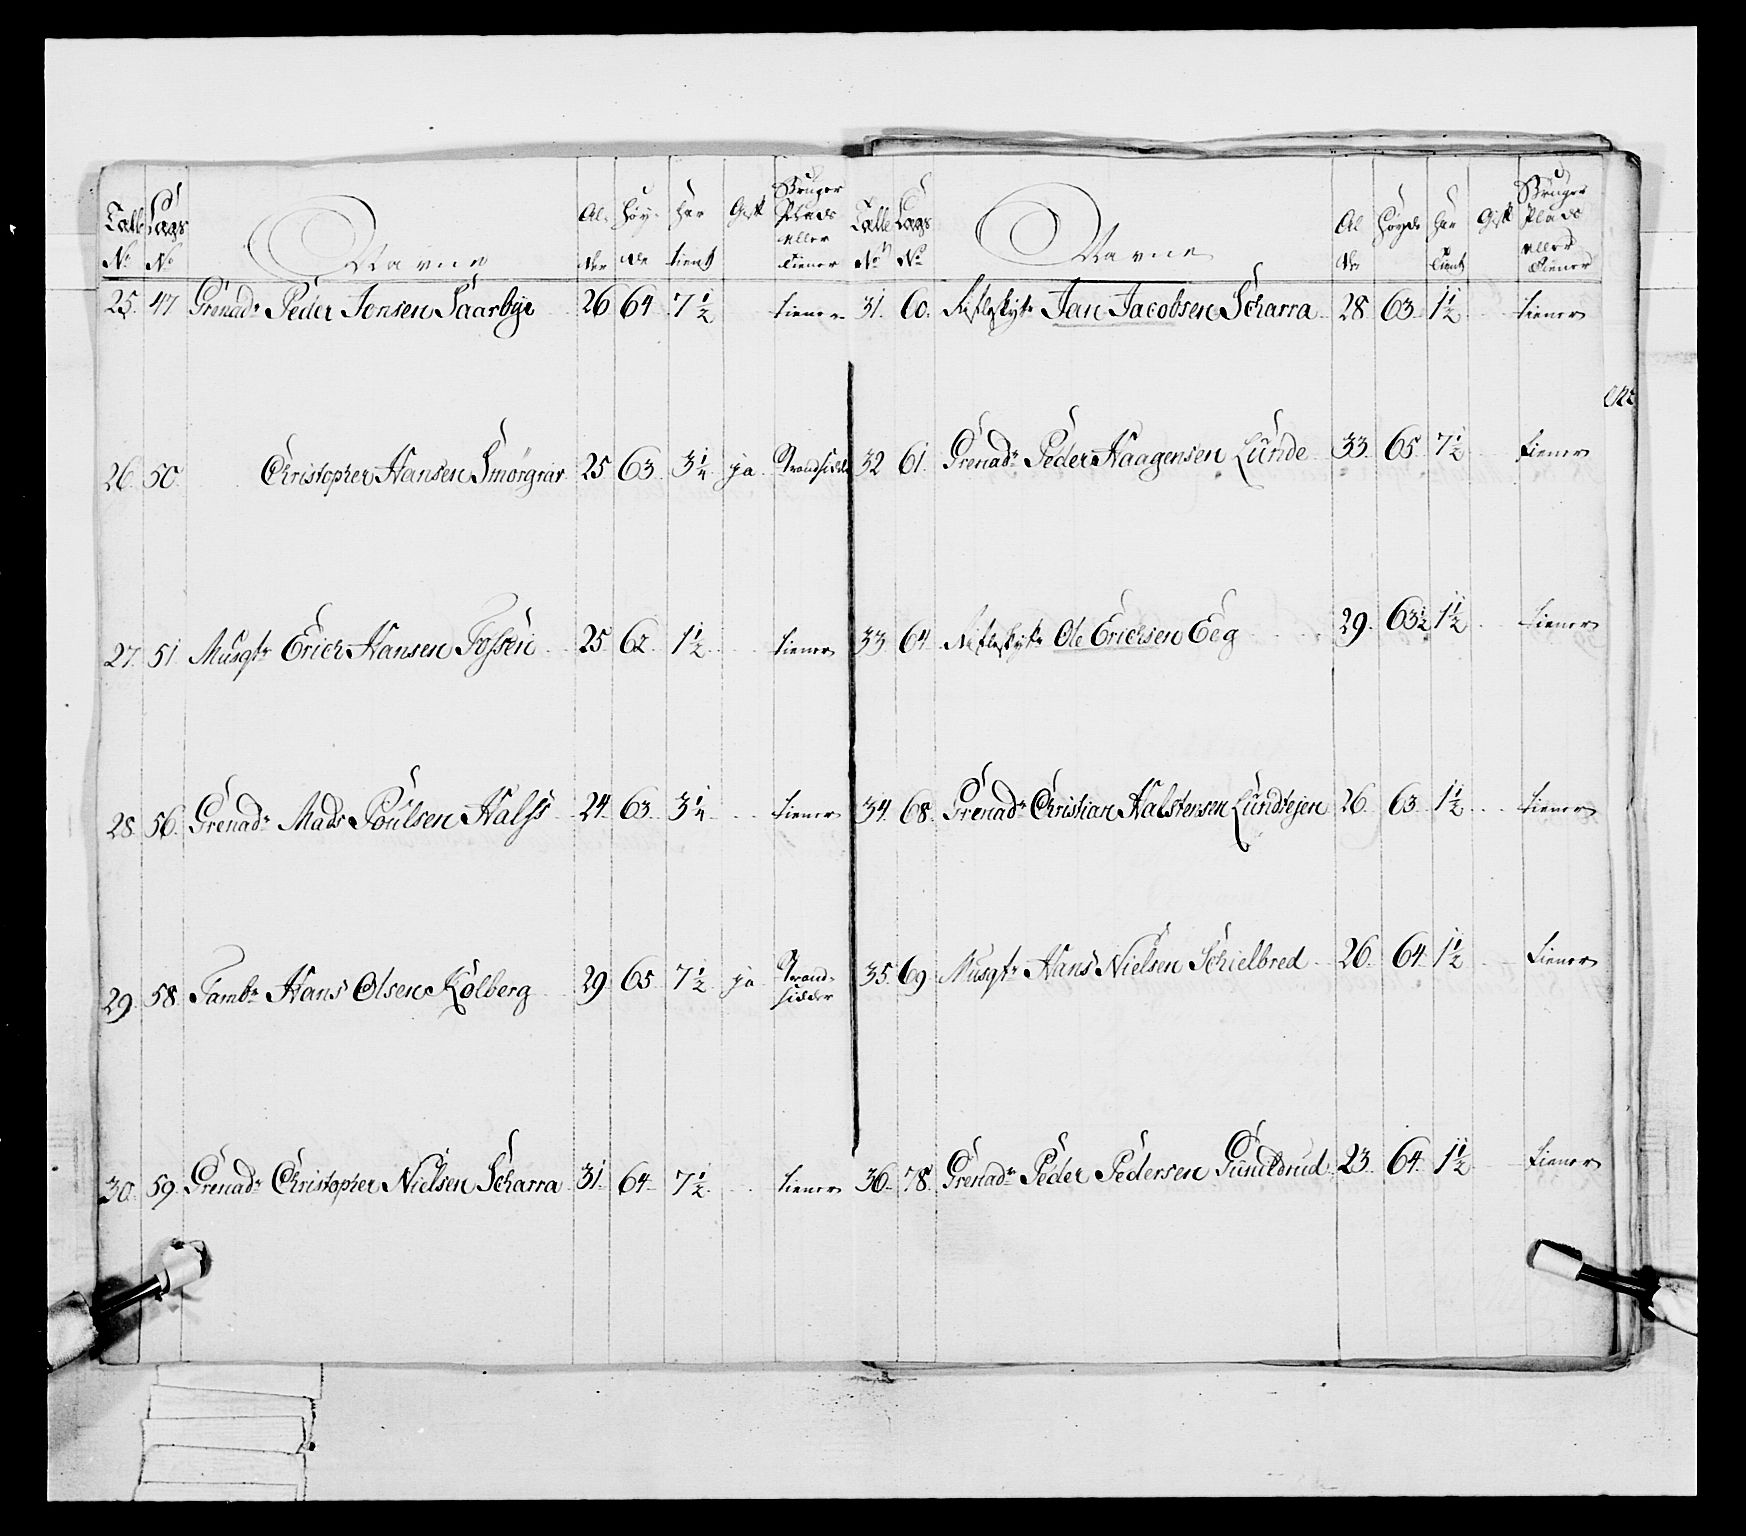 Talle No Lags No Navne Al- der Høy- de har tient Gift Bruger Plads eller tiener
25. 47 Grenadr Peder Jonsen Saarbye 26 64 7 1/2 tiener
26. 50. Christopher Hansen Smørgrav 25 63 3 1/4 ja Strandsidder
27. 51 Musqtr Erich Hansen Fossen 25 62 1 1/2 tiener
28. 56. Grenadr Mads Poulsen Halss 24. 63 3 1/4 tiener
29. 58. Tambr Hans Olsen Kolberg 29 65 7 1/2 ja Strand- sidder
30. 59. Grenadr Christopher Nielsen Scharra 31 64 7 1/2 tiener
Talle No Lags No Navne Al der Høyde har tient Gift Bruger Plads eller Tiener
31. 60. Jan Jacobsen Scharra 28 63 1 1/2 tiener
32 61. Grenadr Peder Haagensen Lunde 33 65 7 1/2 tiener
33 64 Ole Erichsen Eeg 29. 63 1/2 1 1/2 tiener
34. 68. Grenadr Christian Halstensen Lundtejen 26. 63 1 1/2 tiener
35. 69 Musqtr Hans Nielsen Schielbred 26 64 1 1/2 tiener
36. 78. Grenadr Peder Pedersen Gunildrud 23 64 1 1/2 tiener